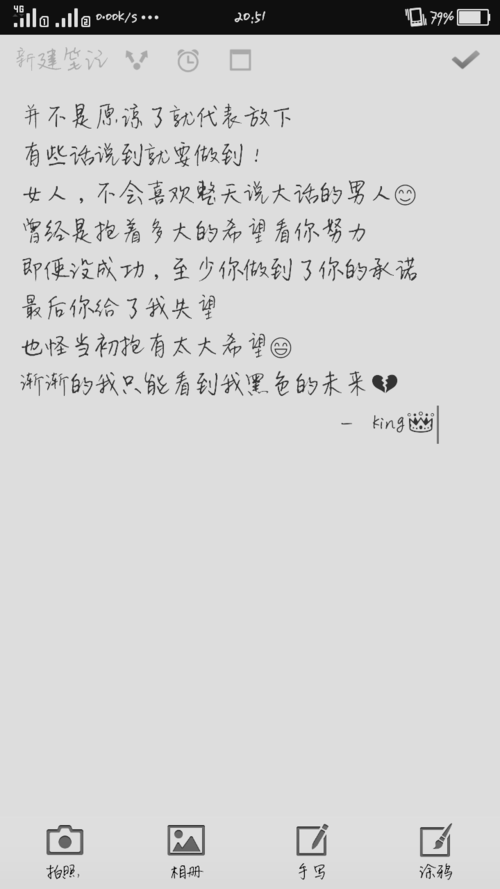 4G 1 2 0.00K/S ••• 20:51 79%
新建笔记
并不是原谅了就代表放下
有些话说到就要做到！
女人，不会喜欢整天说大话的男人😊
曾经是抱着多大的希望看你努力
即便没成功，至少你做到了你的承诺
最后你给了我失望
也怪当初抱有太大希望😄
渐渐的我只能看到我黑色的未来💔
— king👑
拍照, 相册 手写 涂鸦